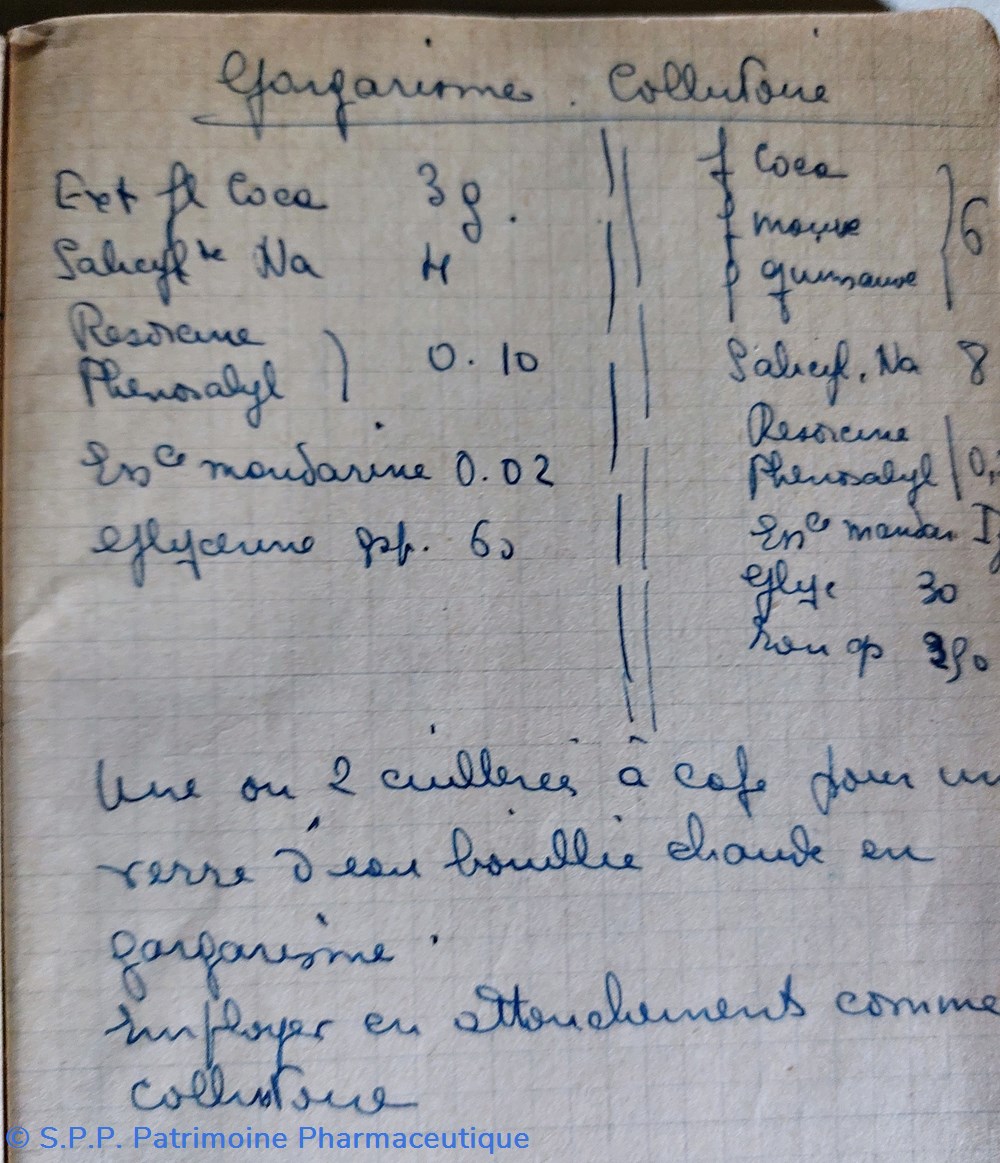 Gargarisme. Collutoire
Ext fl Coca 3 g.
Salicylte Na 4
Resorcine
Phenosalyl } 0.10
Ence mandarine 0.02
Glycerine qsp. 60
f Coca
f mauve
f guimauve } 6
Salicyl. Na 8
Resorcine
Phenosalyl
Ence mandar
Glyc 30
Eau qs
Une ou 2 cuillerées à cafe pour un
verre d'eau bouillie chaude en
gargarisme.
Employer en attouchements comme
collutoire
© S.P.P. Patrimoine Pharmaceutique